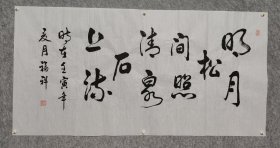 明月
松
间照
清泉
石
上流
时在壬寅年
夏月福祥